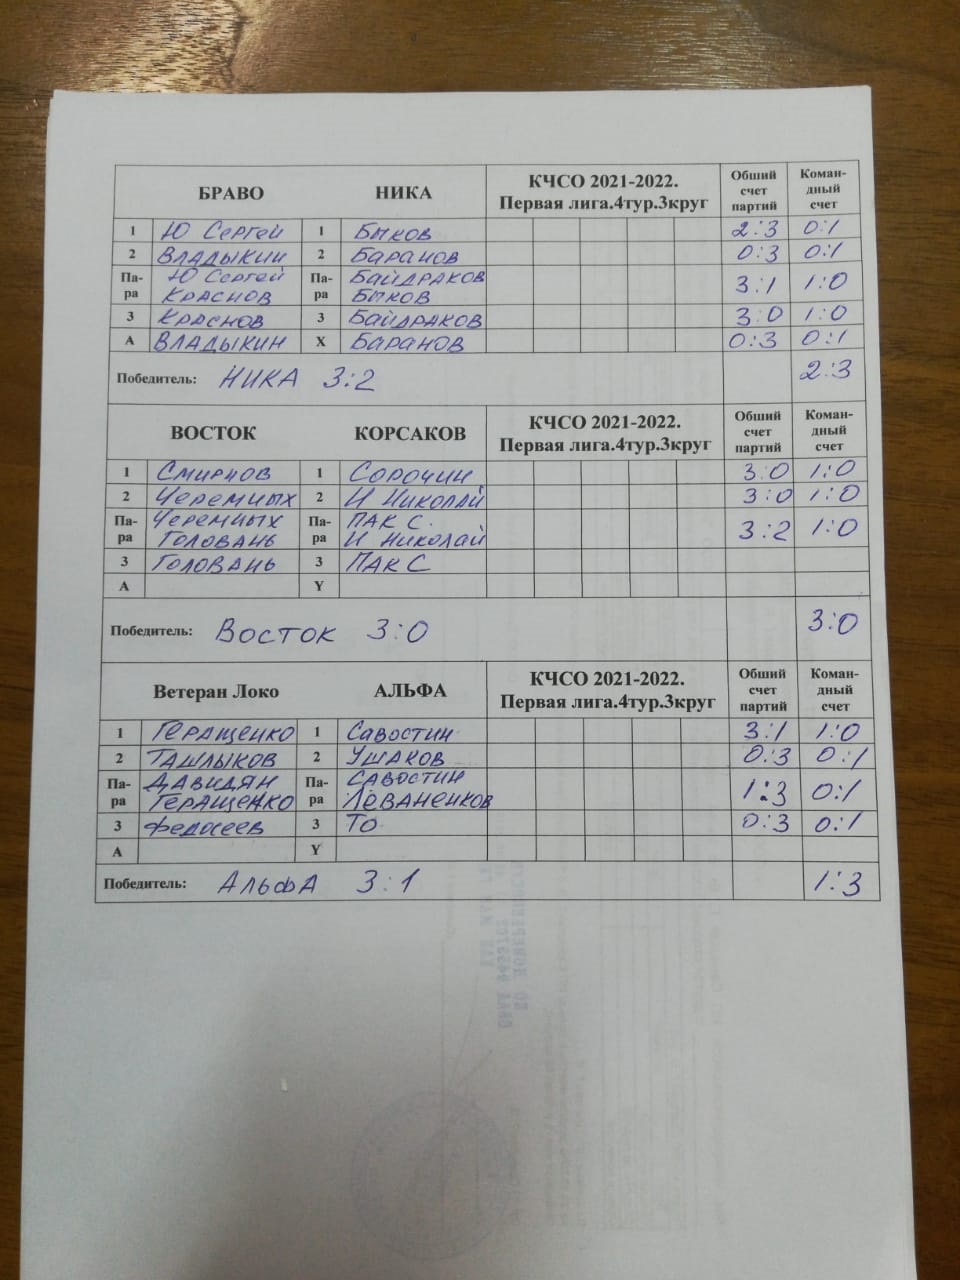 БРАВО НИКА КЧСО 2021-2022. Первая лига.4тур.3круг Обший счет партий Коман-дный счет
1 Ю Сергей 1 Быков 2:3 0:1
2 Владыкин 2 Баранов 0:3 0:1
Па-ра Ю Сергей Краснов Па-ра Байдраков Быков 3:1 1:0
3 Краснов 3 Байдраков 3:0 1:0
А Владыкин Х Баранов 0:3 0:1
Победитель: НИКА 3:2 2:3
ВОСТОК КОРСАКОВ КЧСО 2021-2022. Первая лига.4тур.3круг Обший счет партий Коман-дный счет
1 Смирнов 1 Сорочин 3:0 1:0
2 Черемных 2 И Николай 3:0 1:0
Па-ра Черемных Головань Па-ра ПАК С. И Николай 3:2 1:0
3 Головань 3 ПАК С
А Y
Победитель: Восток 3:0 3:0
Ветеран Локо АЛЬФА КЧСО 2021-2022. Первая лига.4тур.3круг Обший счет партий Коман-дный счет
1 Геращенко 1 Савостин 3:1 1:0
2 Ташлыков 2 Ушаков 0:3 0:1
Па-ра Давидян Геращенко Па-ра Савостин Леваненков 1:3 0:1
3 Федосеев 3 ТО 0:3 0:1
А Y
Победитель: АльфА 3:1 1:3